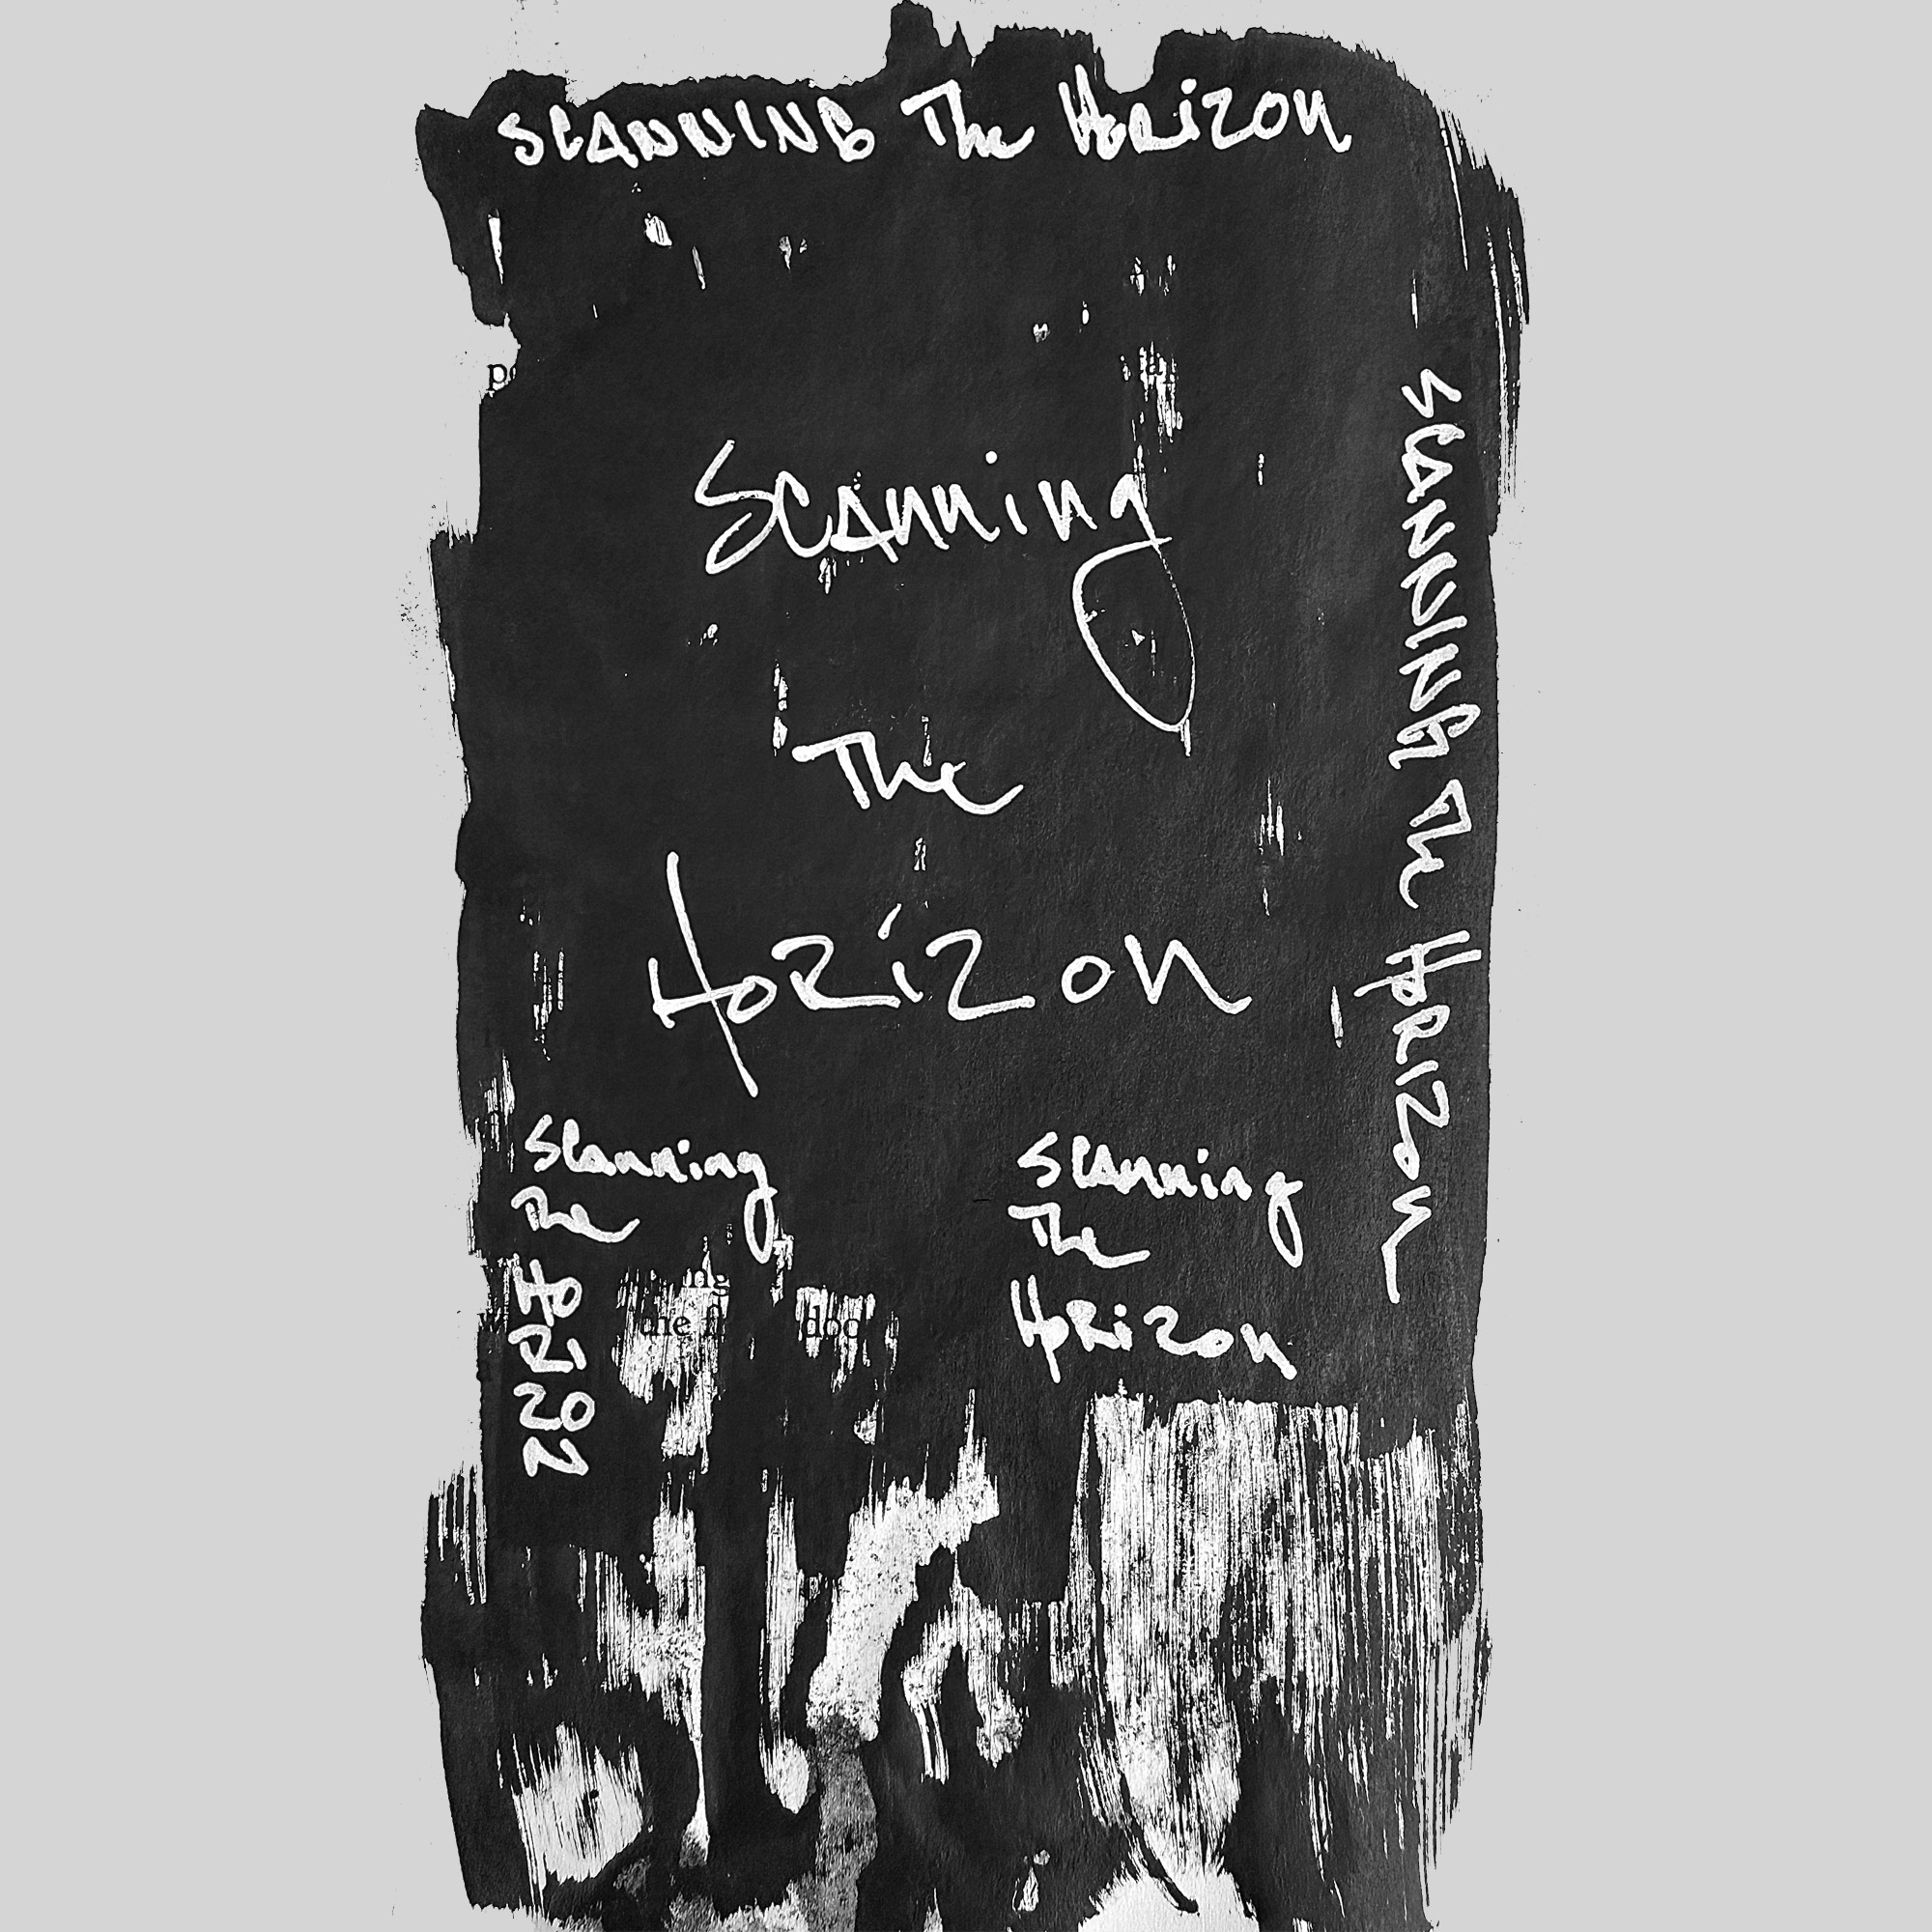 SCANNING The HORiZON
Scanning
The
HORiZON
SCANNING The HORIZON
Scanning
The
HORIZON
Scanning
The
HORiZon
the